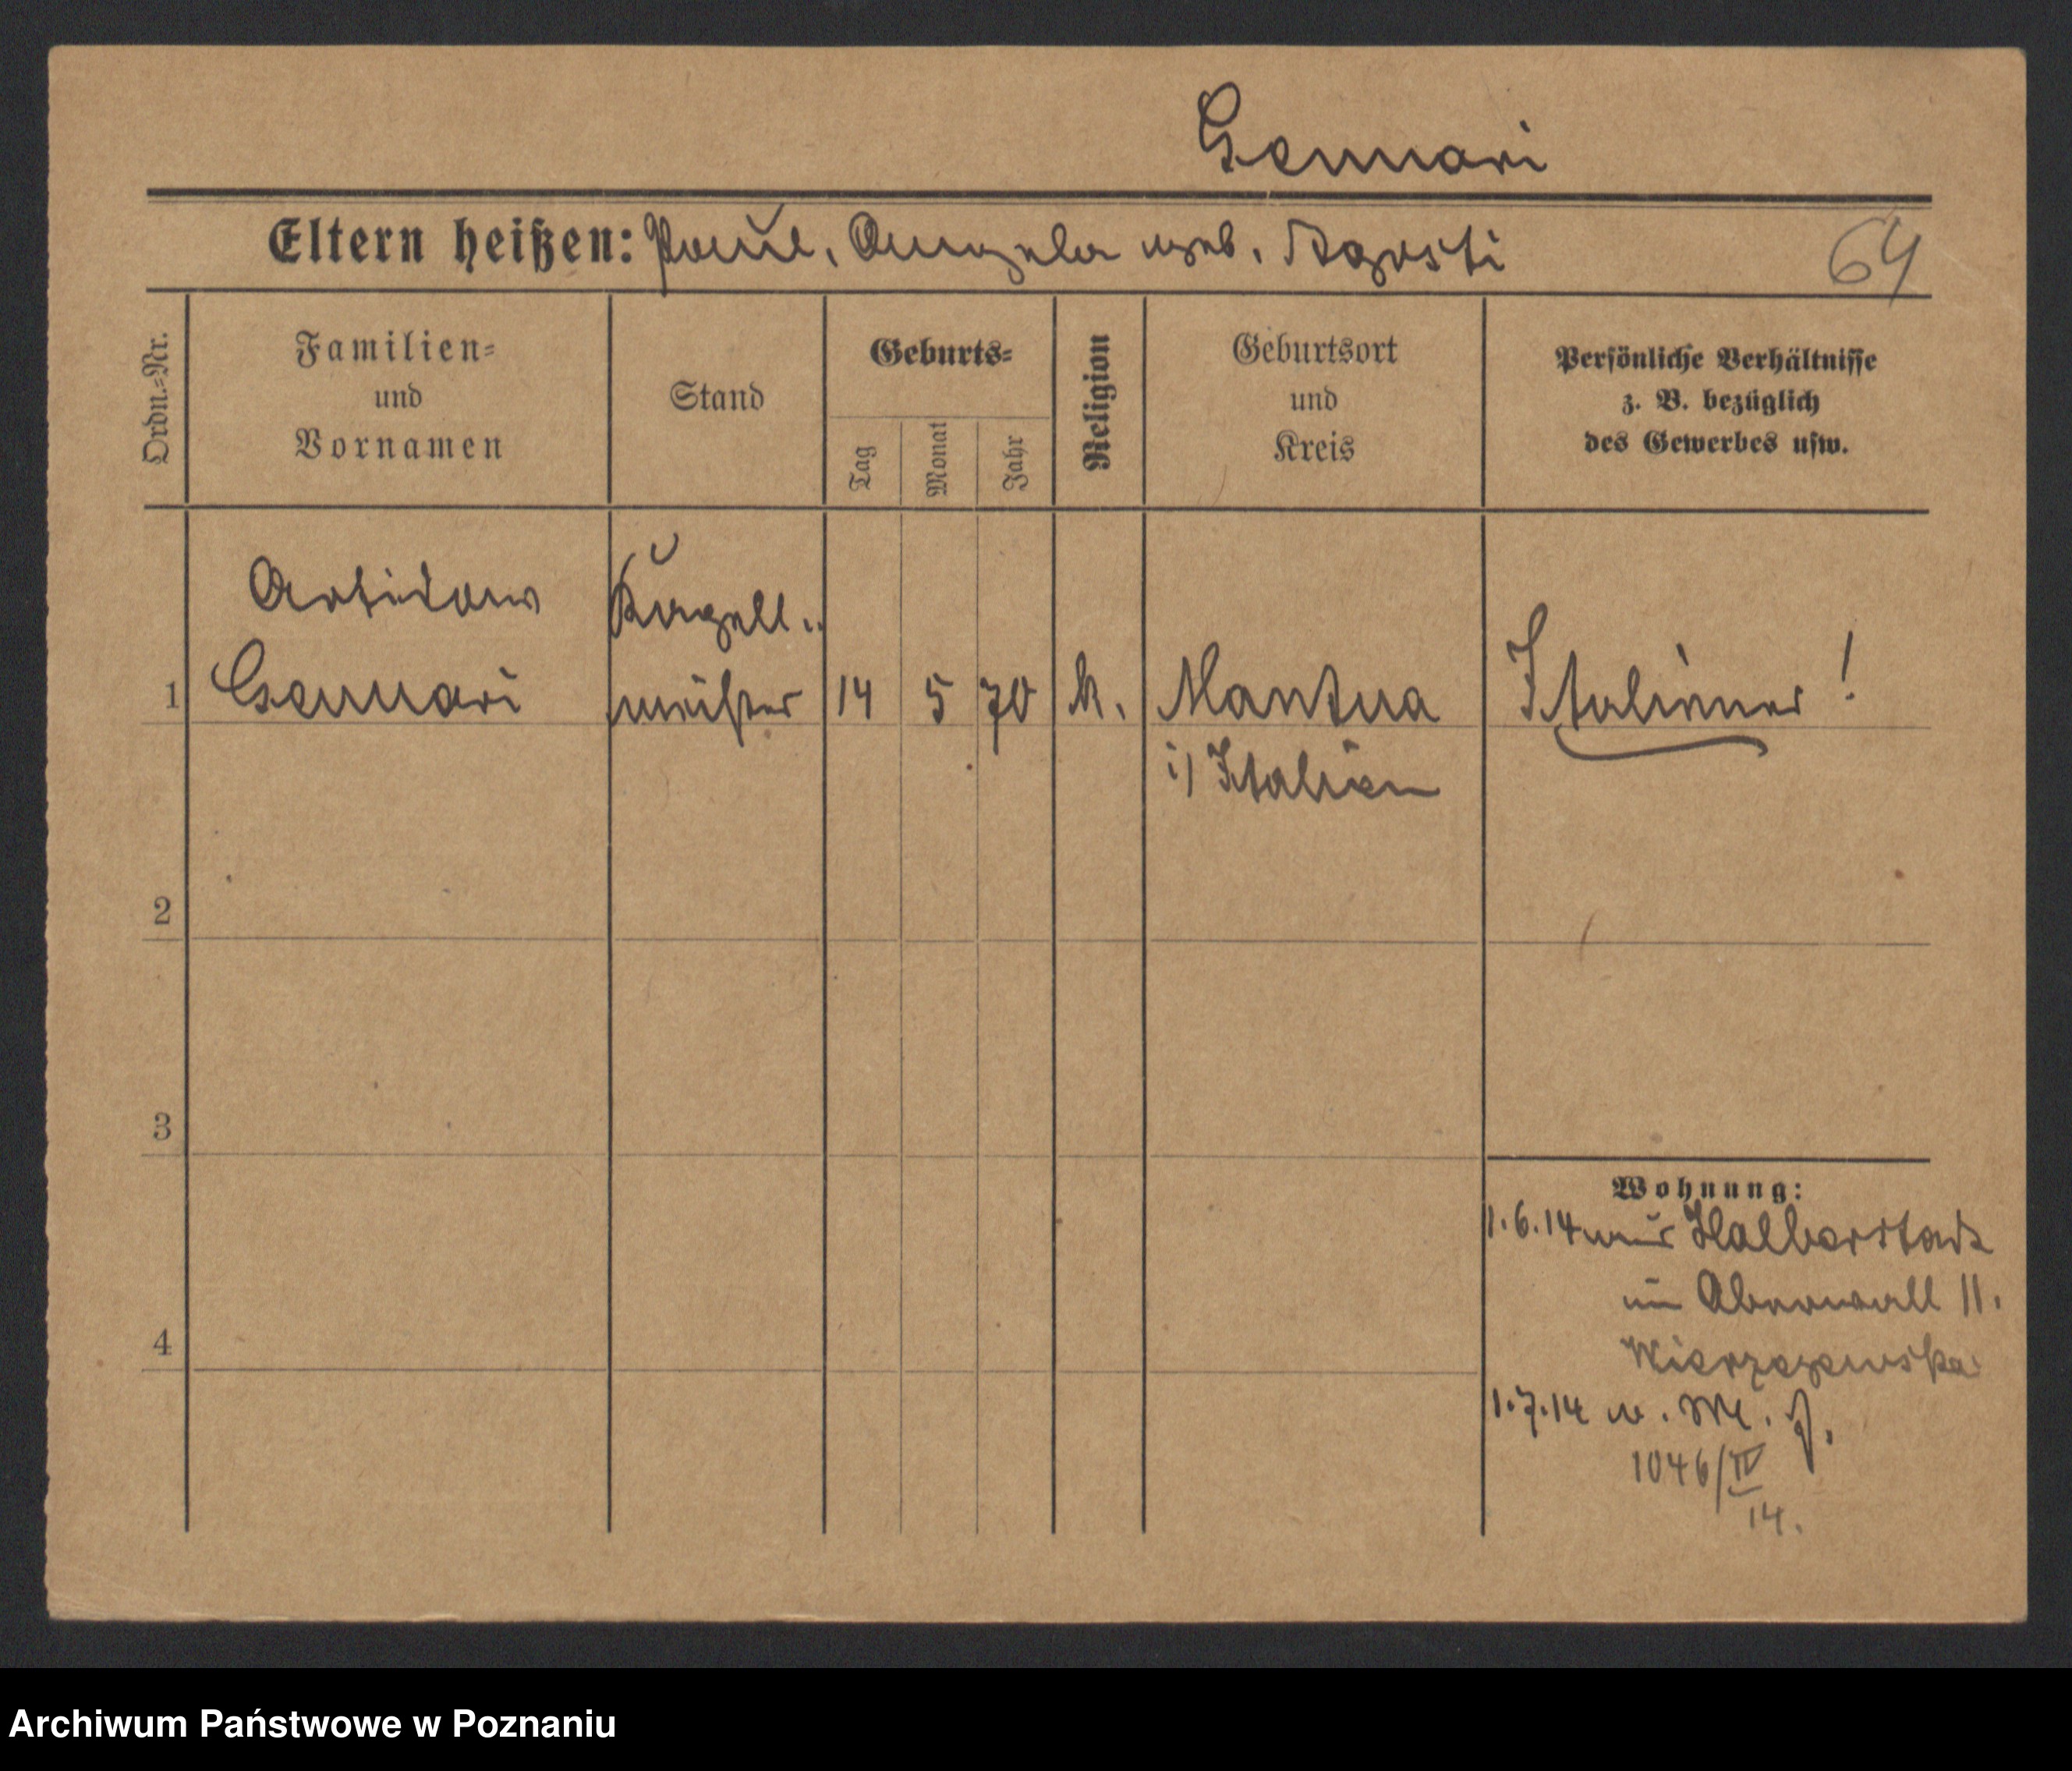 Gennari
Eltern heißen: Paul, Angela geb. Agosti
64
Ordn.-Nr.
Familien-
und
Vornamen
Stand
Geburts-
Tag
Monat
Jahr
Religion
Geburtsort
und
Kreis
Persönliche Verhältnisse
z. B. bezüglich
des Gewerbes usw.
Kapell-
1 Gennari meister 14 5 70 k. Mantua Italiener!
i/ Italien
2
3
Wohnung:
1.6.14 aus Halberstadt
11.
4
1.7.14 n.
1046/IV
14.
Archiwum Państwowe w Poznaniu